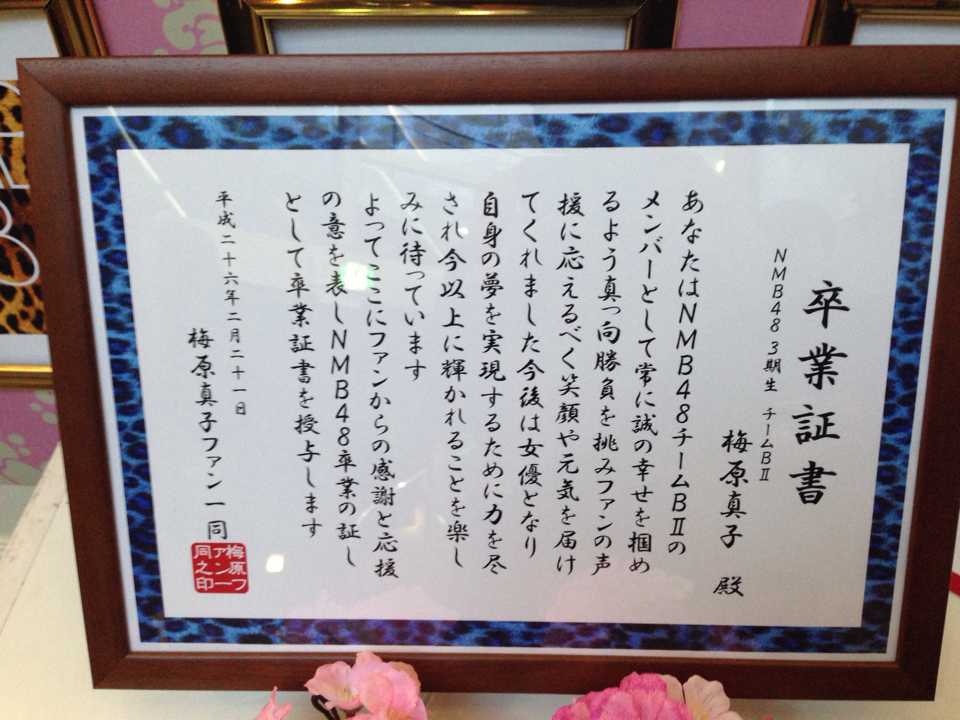 卒業証書
NMB48 3期生 チームBⅡ
梅原真子 殿
あなたはNMB48チームBⅡの
メンバーとして常に誠の幸せを掴め
るよう真っ向勝負を挑みファンの声
援に応えるべく笑顔や元気を届け
てくれました今後は女優となり
自身の夢を実現するために力を尽
され今以上に輝かれることを楽し
みに待っています
よってここにファンからの感謝と応援
の意を表しNMB48卒業の証し
として卒業証書を授与します
平成二十六年二月二十一日
梅原真子ファン一同
梅原フ
ァン一
同之印